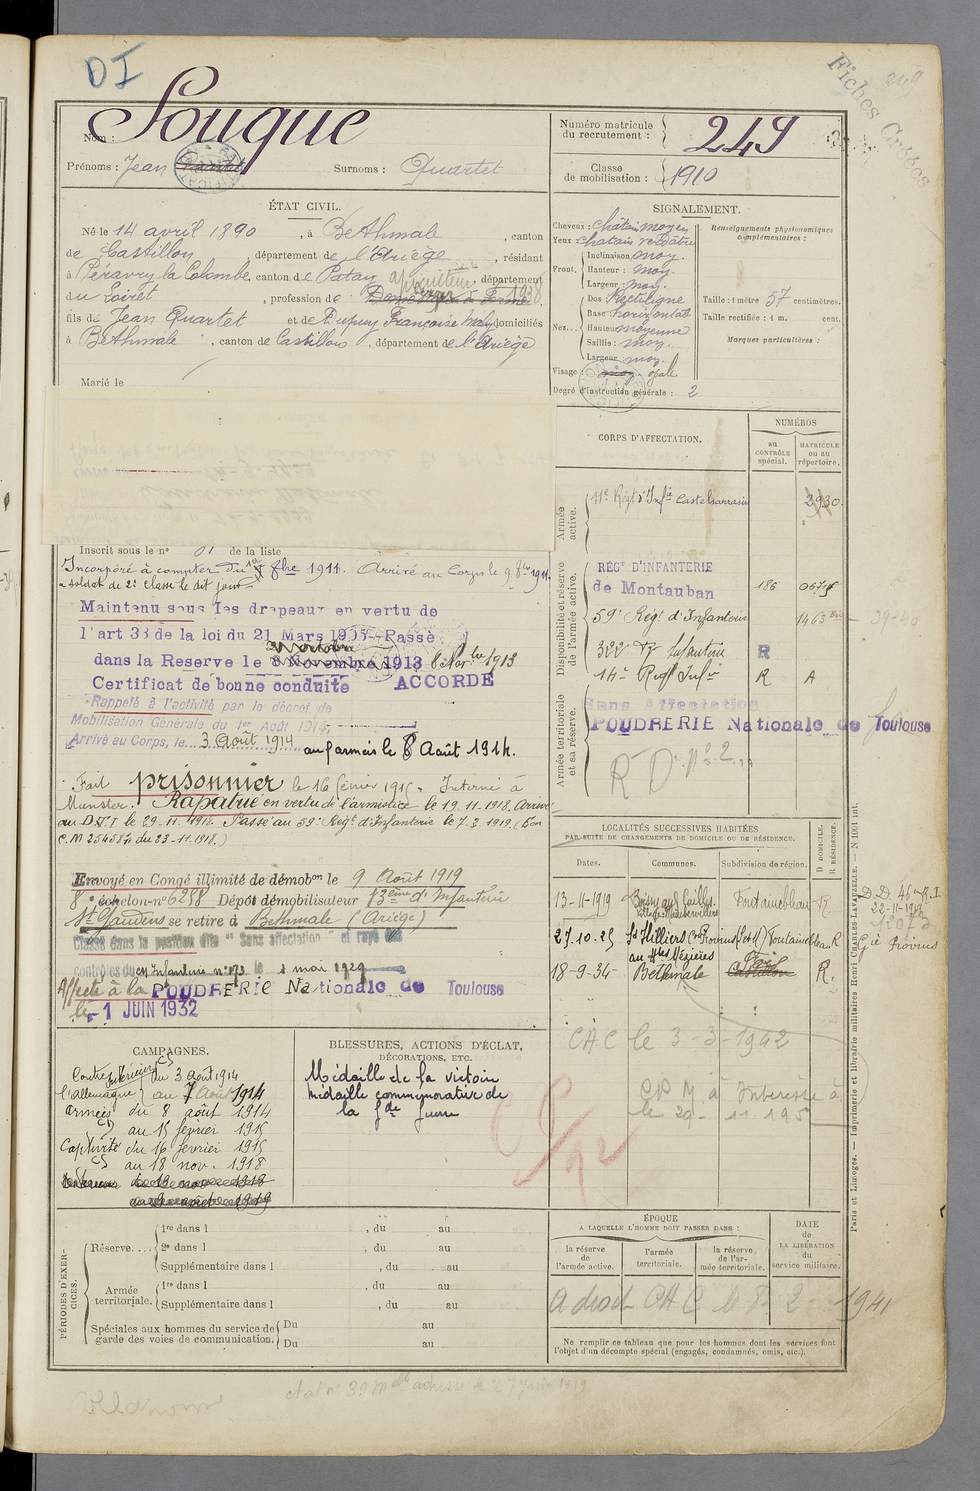 DI
Fiches Cases
249
Nom : Souque
Prénoms : Jean Surnoms : Quartet
Numéro matricule du recrutement : 249
Classe de mobilisation : 1910
ÉTAT CIVIL.
Né le 14 avril 1890, à Bethmale, canton
de Castillon, département de l'Ariège, résidant
à Péravry la Colombe, canton de Patay, département
du Loiret, profession de
fils de Jean Quartet et de Dupuy Françoise domiciliés
à Bethmale, canton de Castillon, département de l'Ariège
Marié le
SIGNALEMENT.
Cheveux : chatain moyen
Yeux chatain verdâtre
Front. Inclinaison moy.
Hauteur : moy.
Largeur : moy.
Nez. Dos Rectiligne
Base horizontale
Hauteur moyenne
Saillie : moy.
Largeur : moy.
Visage : ovale
Degré d'instruction générale : 2
Renseignements physionomiques complémentaires :
Taille : 1 mètre 57 centimètres.
Taille rectifiée : 1 m. cent.
Marques particulières :
Inscrit sous le n° 51 de la liste
Incorporé à compter du 8bre 1911. Arrivé au Corps le 9 8bre 1911.
soldat de 2e classe le dit jour
Maintenu sous les drapeaux en vertu de
l'art 33 de la loi du 21 Mars 1905 - Passé
dans la Reserve le 8 Novembre 1913 8 Novbre 1913
Certificat de bonne conduite ACCORDÉ
Rappelé à l'activité par le décret de
Mobilisation Générale du 1er Août 1914,
Arrivé au Corps, le 3 Août 1914 aux armées le 8 Août 1914.
Fait prisonnier le 16 février 1915. Interné à
Munster. Rapatrié en vertu de l'armistice le 19.11.1918. Arrivé
au D.T.I le 29.11.1918. Passé au 59e Régt d'Infanterie le 7.2.1919.
C.M 25458 du 23-11-1918.)
Envoyé en Congé illimité de démobon le 9 Août 1919
8e échelon-n° 6258 Dépôt démobilisateur 83ème d'Infanterie
St Gaudens se retire à Bethmale (Ariège)
Classé dans la position dite "Sans affectation" et rayé des
contrôles du C.M Infanterie n° 173 le 1 mai 1929
Affecté à la POUDRERIE Nationale de Toulouse
le 1 JUIN 1932
CORPS D'AFFECTATION.
NUMÉROS
au CONTRÔLE spécial.
MATRICULE ou au répertoire.
Armée active.
11e Régt d'Infie Castelsarrasin 2930
Disponibilité et réserve de l'armée active.
RÉGt D'INFANTERIE
de Montauban
59e Régt d'Infanterie 1463 bis
322 RI Infanterie R
14e Régt Infie R A
Armée territoriale et sa réserve.
Sans Affectation
POUDRERIE Nationale de Toulouse
LOCALITÉS SUCCESSIVES HABITÉES
PAR SUITE DE CHANGEMENTS DE DOMICILE OU DE RÉSIDENCE.
Dates. Communes. Subdivision de région. D DOMICILE. R RÉSIDENCE.
13-11-1919 Fontainebleau R
27.10.25 St Hilliers Cn Provins (S et M) Fontainebleau R
18-9-34 Bethmale R.
CAC le 3-3-1942
D.D. 46e R.I
22-11-19
Gie Provins
CAMPAGNES.
Contre l'Allemagne
Intérieur du 3 Août 1914
au 7 Août 1914
armées du 8 août 1914
au 15 février 1915
Captivité du 16 février 1915
au 18 nov. 1918
BLESSURES, ACTIONS D'ÉCLAT, DÉCORATIONS, ETC.
Médaille de la victoire
médaille commémorative de
la Gde Guerre
PÉRIODES D'EXERCICES.
Réserve.... 1re dans l , du au
2e dans l , du au
Supplémentaire dans l , du au
Armée territoriale. 1re dans l , du au
Supplémentaire dans l , du au
Spéciales aux hommes du service de garde des voies de communication. Du au
Du au
ÉPOQUE
A LAQUELLE L'HOMME DOIT PASSER DANS :
la réserve de l'armée active. l'armée territoriale. la réserve de l'armée territoriale.
DATE de LA LIBÉRATION du service militaire.
a droit CAC le 8 2 1941
Ne remplir ce tableau que pour les hommes dont les services font
l'objet d'un décompte spécial (engagés, condamnés, omis, etc.).
Paris et Limoges. — Imprimerie et librairie militaires Henri CHARLES-LAVAUZELLE. — N° 1001 int.